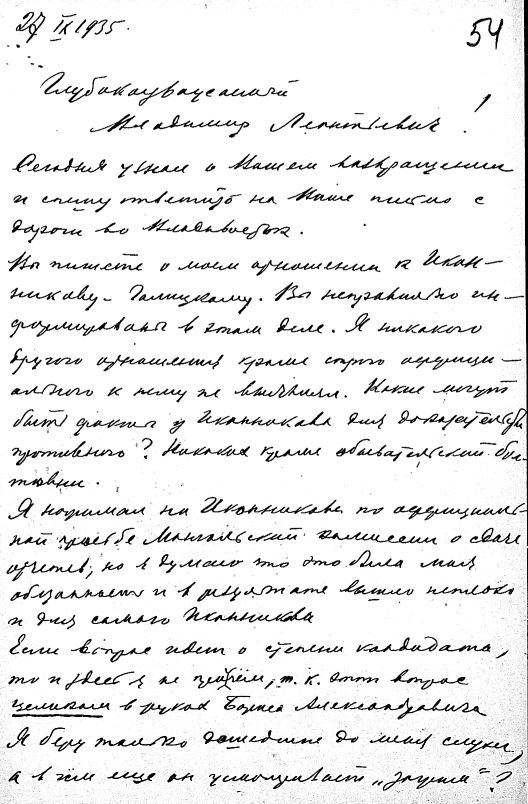 27 IX 1935.
54
Глубокоуважаемый
Владимир Леонтьевич!
Сегодня узнал о Вашем возвращении
и спешу ответить на Ваше письмо с
дороги во Владивосток.
Вы пишете о моем отношении к Икон-
никову-Галицкому. Вы неправильно ин-
формированы в этом деле. Я никакого
другого отношения кроме строго официи-
ального к нему не
быть факты у Иконникова для доказательства
противного? Никаких кроме обывательской бол-
товни.
Я нажимал на Иконникова по официаль-
ной просьбе Монгольской комиссии о сдаче
отчетов, но я думаю что это была моя
обязанность и в результате вышло неплохо
и для самого Иконникова
Если вопрос идет о степени кандидата,
то и здесь я не причем, т.к. этот вопрос
целиком в руках Бориса Александровича
Я беру только дошедшие до меня слухи,
а в чем еще он усматривает „